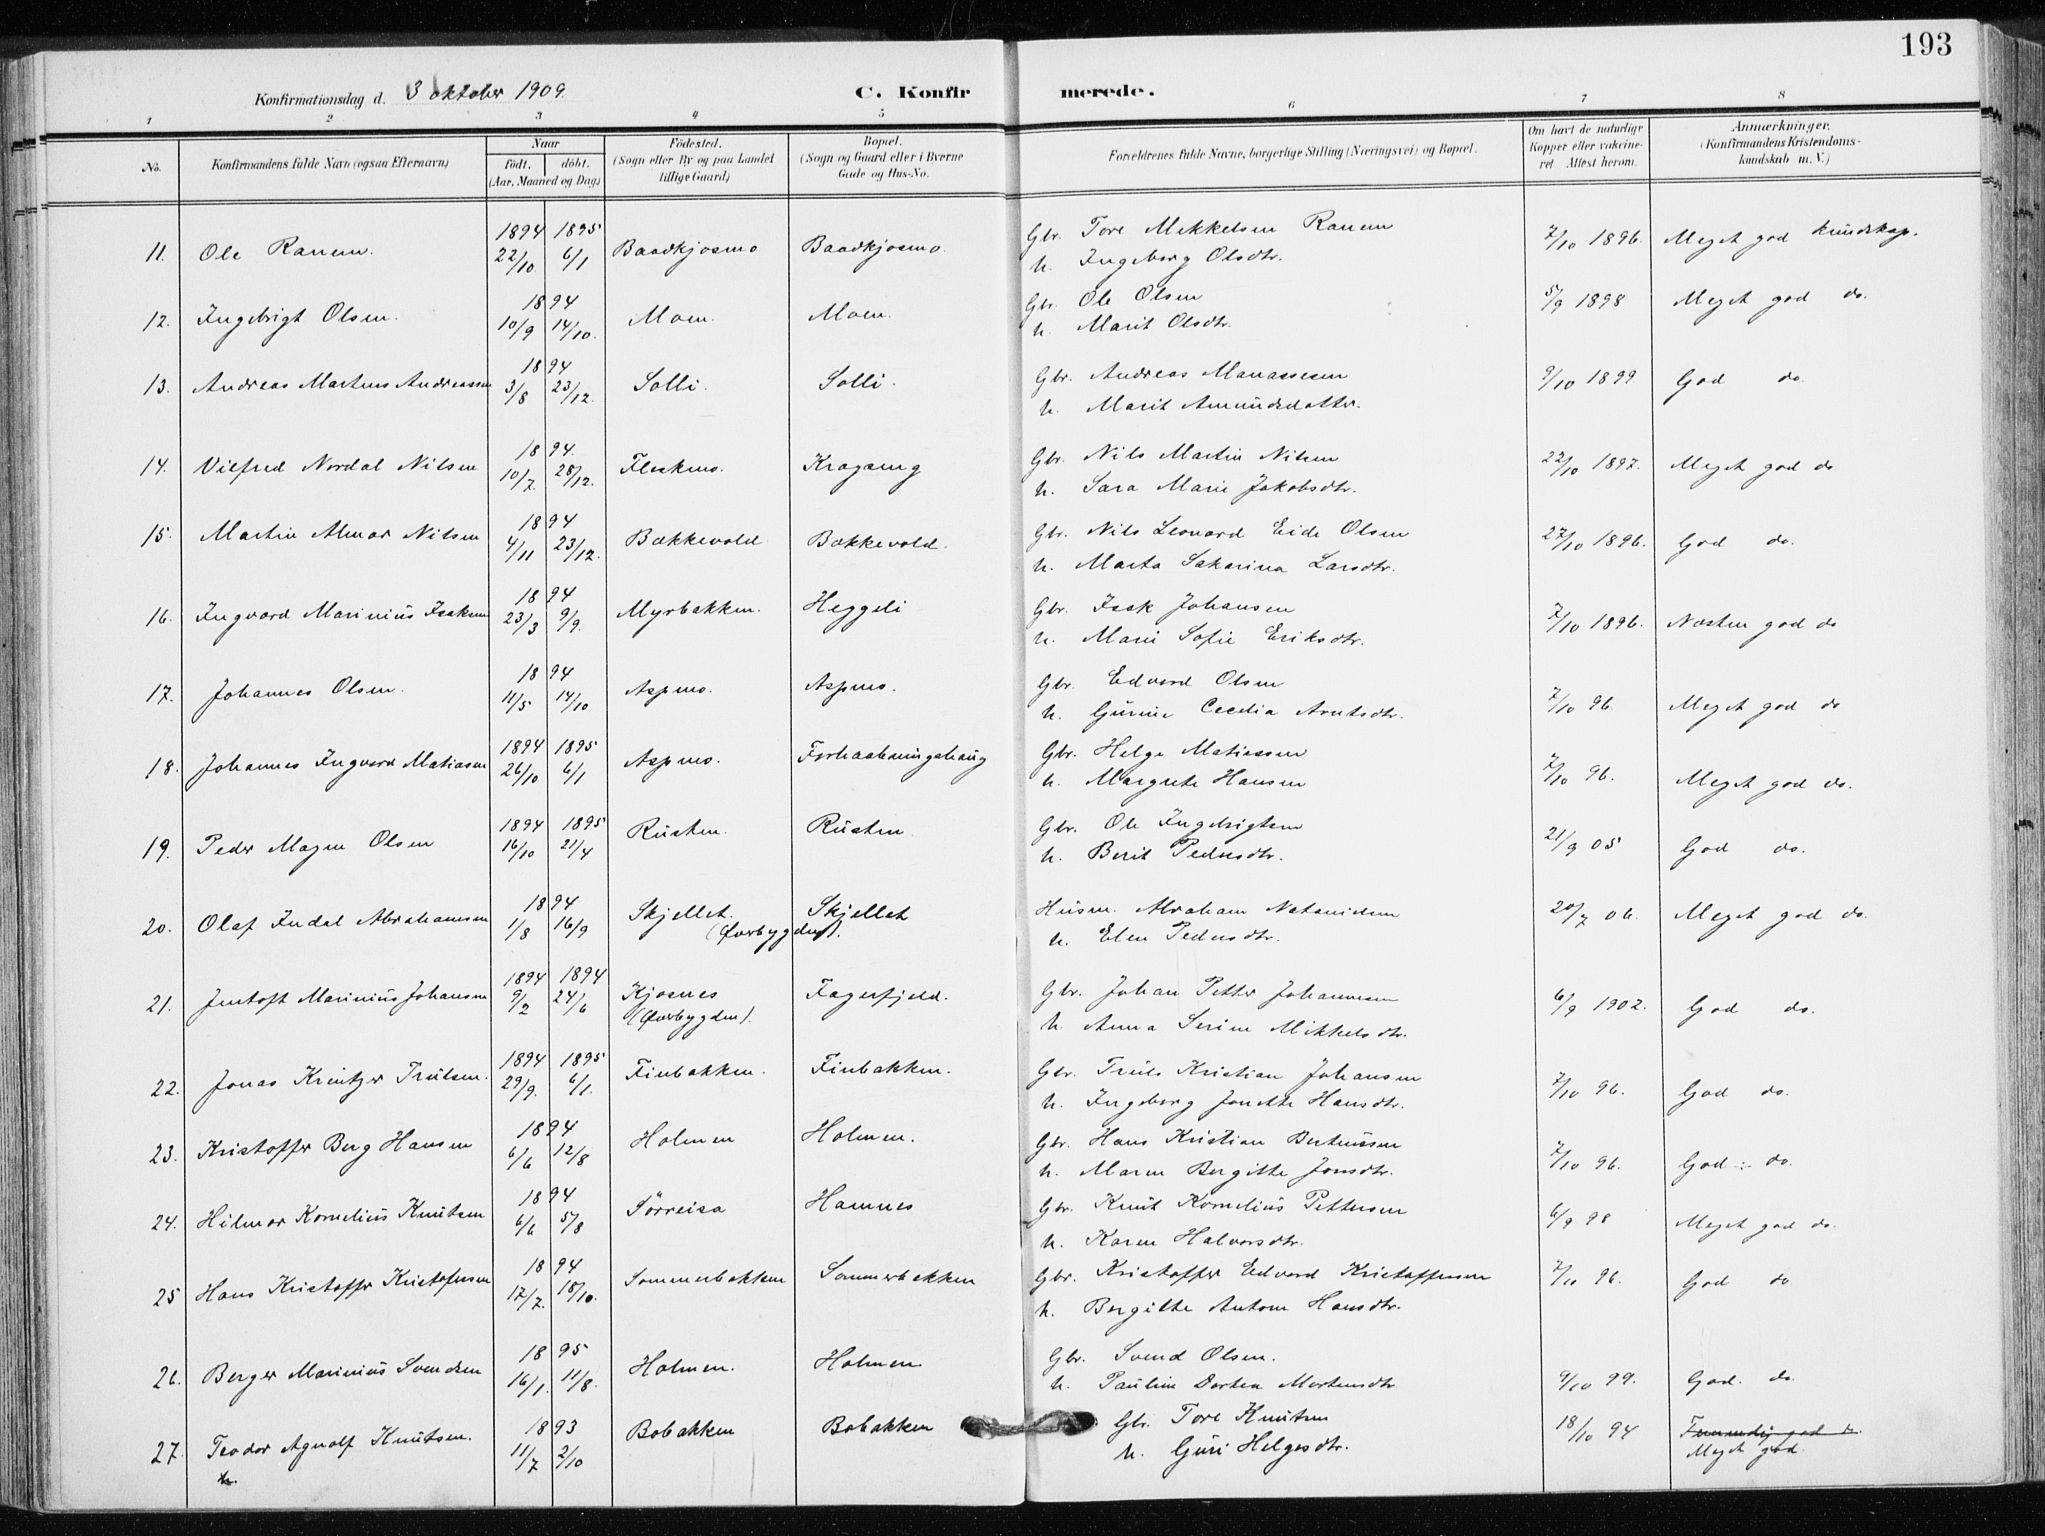 193
Konfirmationsdag d. 3 oktober 1909. C. Konfirmerede.
1 2 3 4 5 6 7 8
No. Konfirmandens fulde Navn (ogsaa Efternavn) Naar født, døbt. (Aar, Maaned og Dag) Fødested. (Sogn eller By og paa Landet tillige Gaard) Bopæl. (Sogn og Gaard eller i Byerne Gade og Hus-No. Forældrenes fulde Navne, borgerlige Stilling (Næringsvei) og Bopæl. Om havt de naturlige Kopper eller vakcineret Attest herom. Anmærkninger. (Konfirmandens Kristendomskundskab m. V.)
1894 1895 Gbr. Tore Mikkelsen Ranem
11. Ole Ranem. 22/10. 6/1 Baadkjosmo Baadkjosmo. 7/10 1896. Meget god kundskap.
h. Ingeborg Olsdtr.
1894 Gbr. Ole Olsen
12. Ingebrigt Olsen. 10/9 14/10. Moen. Moen. 5/9 1898 Meget god do.
h. Marit Olsdtr.
1894 Gbr. Andreas Manassesen
13. Andreas Martens Andreassen 3/8 23/12. Solli. Solli. 9/10 1899. God do.
h. Marit Amundsdatter.
1894. Gbr. Nils Martin Nilsen
14. Vilfred Nordal Nilsen 10/7. 28/12. Fleskmo. Krogseng 22/10 1897. Meget god do
h. Sara Marie Jakobsdtr.
1894 Gbr. Nils Leonard Eide Olsen
15. Martin Almar Nilsen 4/11 23/12. Bækkevold Bækkevold. 27/10 1896. God do.
h. Marta Sakarina Larsdtr.
1894 Gbr. Isak Johansen
16. Ingvard Marinius Isaksen 23/3 9/9. Myrbakken. Heggeli 7/10 1896. Næsten god do
h. Marie Sofie Eriksdtr.
1894 Gbr. Edvard Olsen
17. Johannes Olsen. 11/5 14/10 Aspmo. Aspmo. 7/10 96. Meget god do
h. Gurine Cecelia Arntsdtr.
1894 1895 Gbr. Helge Matiassen
18. Johannes Ingvard Matiasen 26/10 6/1 Aspmo. Forhaabningshaug 7/10 96. Meget god do.
h. Margrete Hansen
1894 1895 Gbr. Ole Ingebrigtsen
19. Peder Magne Olsen 16/10 21/4 Rusten. Rusten 21/9 05 God do.
h. Berit Pedersdtr.
1894 Husm. Abraham Natanielsen
20. Olaf Indal Abrahamsen 1/8 16/9 Skjellet. (Øverbygden). Skjellet 20/7 06. Meget god do.
h. Elen Pedersdtr.
1894 1894 Gbr. Johan Petter Johannesen
21. Jentoft Marinius Johansen 9/2 24/6 Kjosnes (Øverbygden). Fagerfjeld. 6/9 1902. God do.
h. Anna Serine Mikkelsdtr.
1894 1895 Gbr. Truls Kristian Johansen
22. Jonas Kreutzer Trulsen. 29/9. 6/1. Finbakken. Finbakken. 7/10 96. God do.
h. Ingeborg Jonette Hansdtr.
1894 Gbr. Hans Kristian Berteussen
23. Kristoffer Berg Hansen 6/6 12/8 Holmen Holmen. 7/10 96. God do.
h. Maren Bergitte Jonsdtr.
1894 Gbr. Knut Kornelius Pettersen
24. Hilmar Kornelius Knutsen 6/6 5/8 Sørreisa Hamnes 6/9 98 Meget god do.
h. Karen Halvorsdtr.
1894 Gbr. Kristoffer Edvard Kristoffersen
25 Hans Kristoffer Kristofersen 17/7. 18/10. Sommerbakken Sommerbakken 7/10 96. God do
h. Bergitte Antone Hansdtr.
1895 Gbr. Svend Olsen.
26. Berger Marinius Svendsen 16/1. 11/8. Holmen. Holmen. 9/10 99. God. do.
h. Pauline Dortea Mortensdtr
1893 Gbr. Tore Knutsen
27. Teodor Agnolf Knutsen. 11/7 2/10 Bobakken Bobakken 18/10 94 Meget god
h. Guri Helgesdtr.